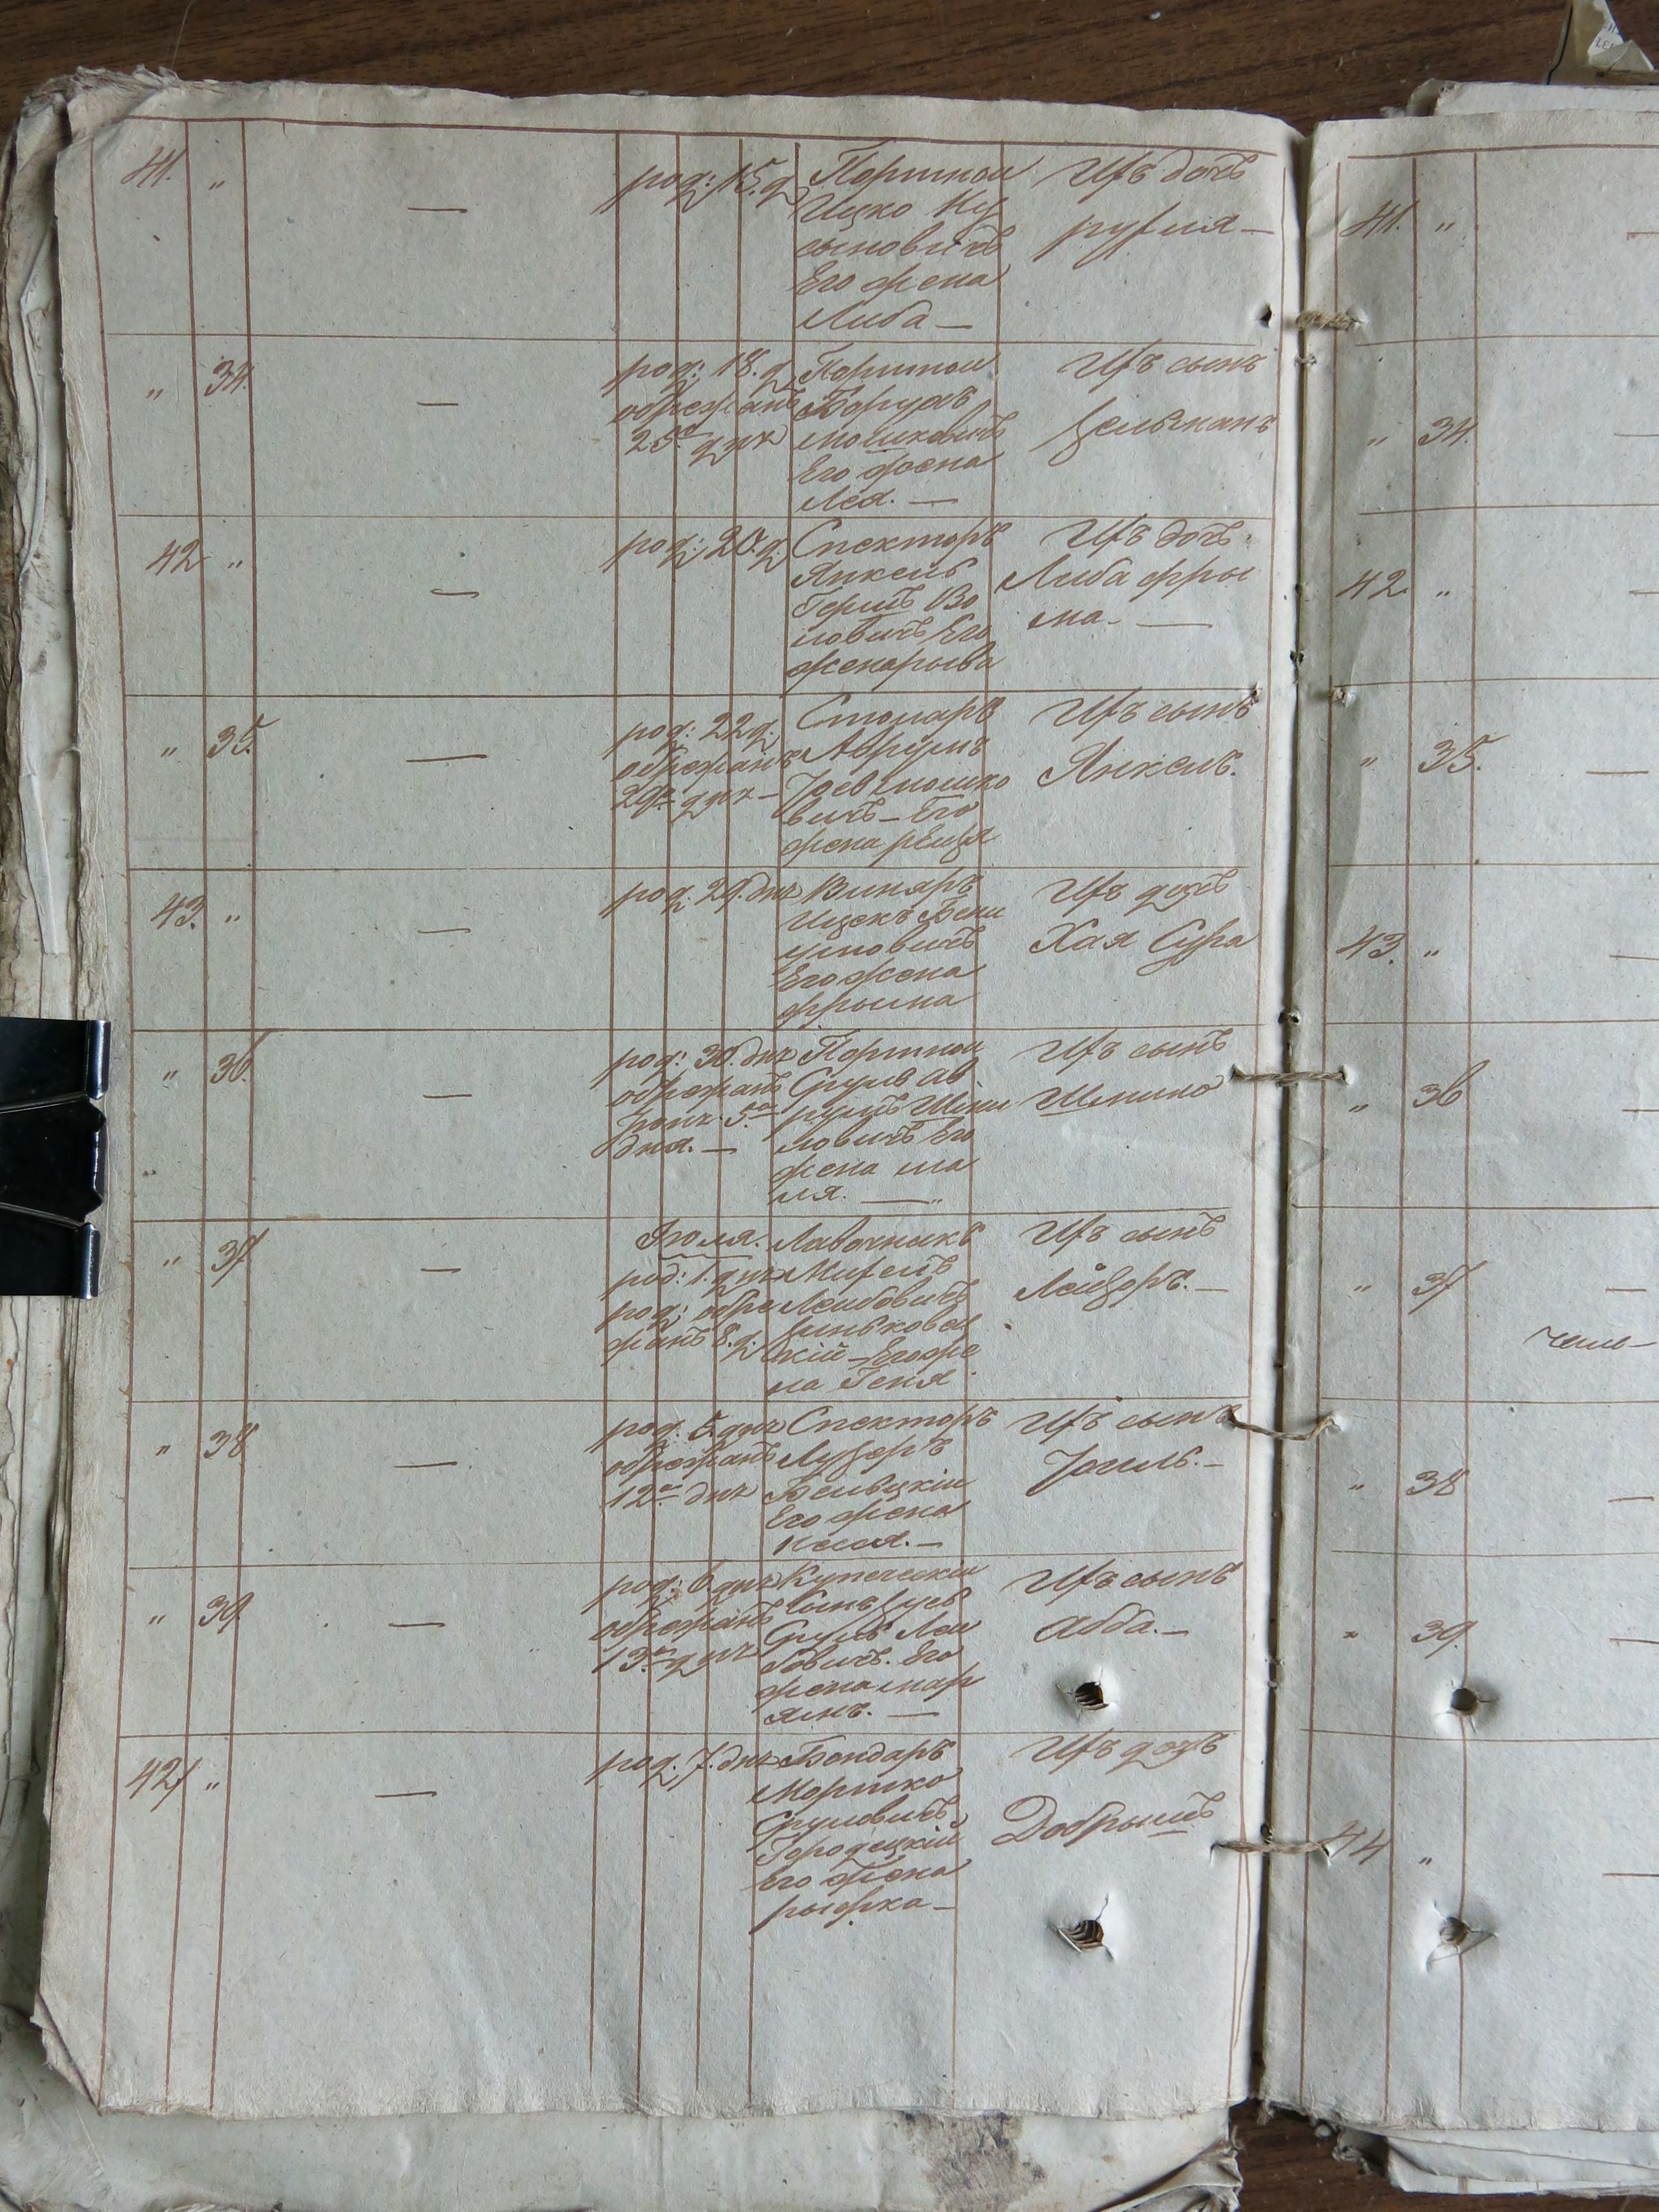 41. "
—
род: 15. д
Портной
Ицко Ну
сымовичъ
Его жена
Либа —
Ихъ дочь
рухля —
" 34.
—
род: 18. д
обрежанъ
25го дня
Портной
Борухъ
мошковичъ
Его жена
Лея. —
Ихъ сынъ
Зельманъ
42 "
—
род: 20. д:
Спекторъ
Янкель
Гершъ Во
ловичъ Его
жена рыва
Ихъ дочь
Либа фры
ма. —
" 35.
—
род: 22 д:
обрежанъ
29го дня —
Столяръ
Аврумъ
Іоев мошко
вичъ — Его
жена рейзя
Ихъ сынъ
Янкель.
43. "
—
род: 29. дня
Винярь
Ицекъ Бени
уминовичъ
Его жена
фрыма
Ихъ дочь
Хая Сура
" 36.
—
род: 30. дня
обрежанъ
Іюля. 5го
дня. —
Портной
Сруль Ав
румъ Шми
ловичъ Его
жена ма
ля. —
Ихъ сынъ
Шмило
" 37
—
Іюля.
род: 1. дня
род: обре
жанъ 8. д:
Лавочникъ
Мисель
Лейбовичъ
Зиньковец
кій — Его же
на Геня
Ихъ сынъ
Лейзоръ. —
" 38
—
род: 5. дня
обрежанъ
12го дня
Спекторъ
Лузеръ
Бельцкій
Его жена
Неся. —
Ихъ сынъ
Іосиль. —
" 39.
—
род: 6 дня
обрежанъ
13го дня
Купеческій
сынъ Зусь
Сруль Лей
бовичъ. Его
жена мар
ямъ. —
Ихъ сынъ
Абба. —
"
—
род: 7. дня
Бондаръ
Моршко
Сруловичъ
Городецкій
Его жена
рыфка —
Ихъ дочь
Добрышъ
41. "
" 34.
42. "
" 35.
43. "
" 36
" 37
" 38
" 39.
44 "